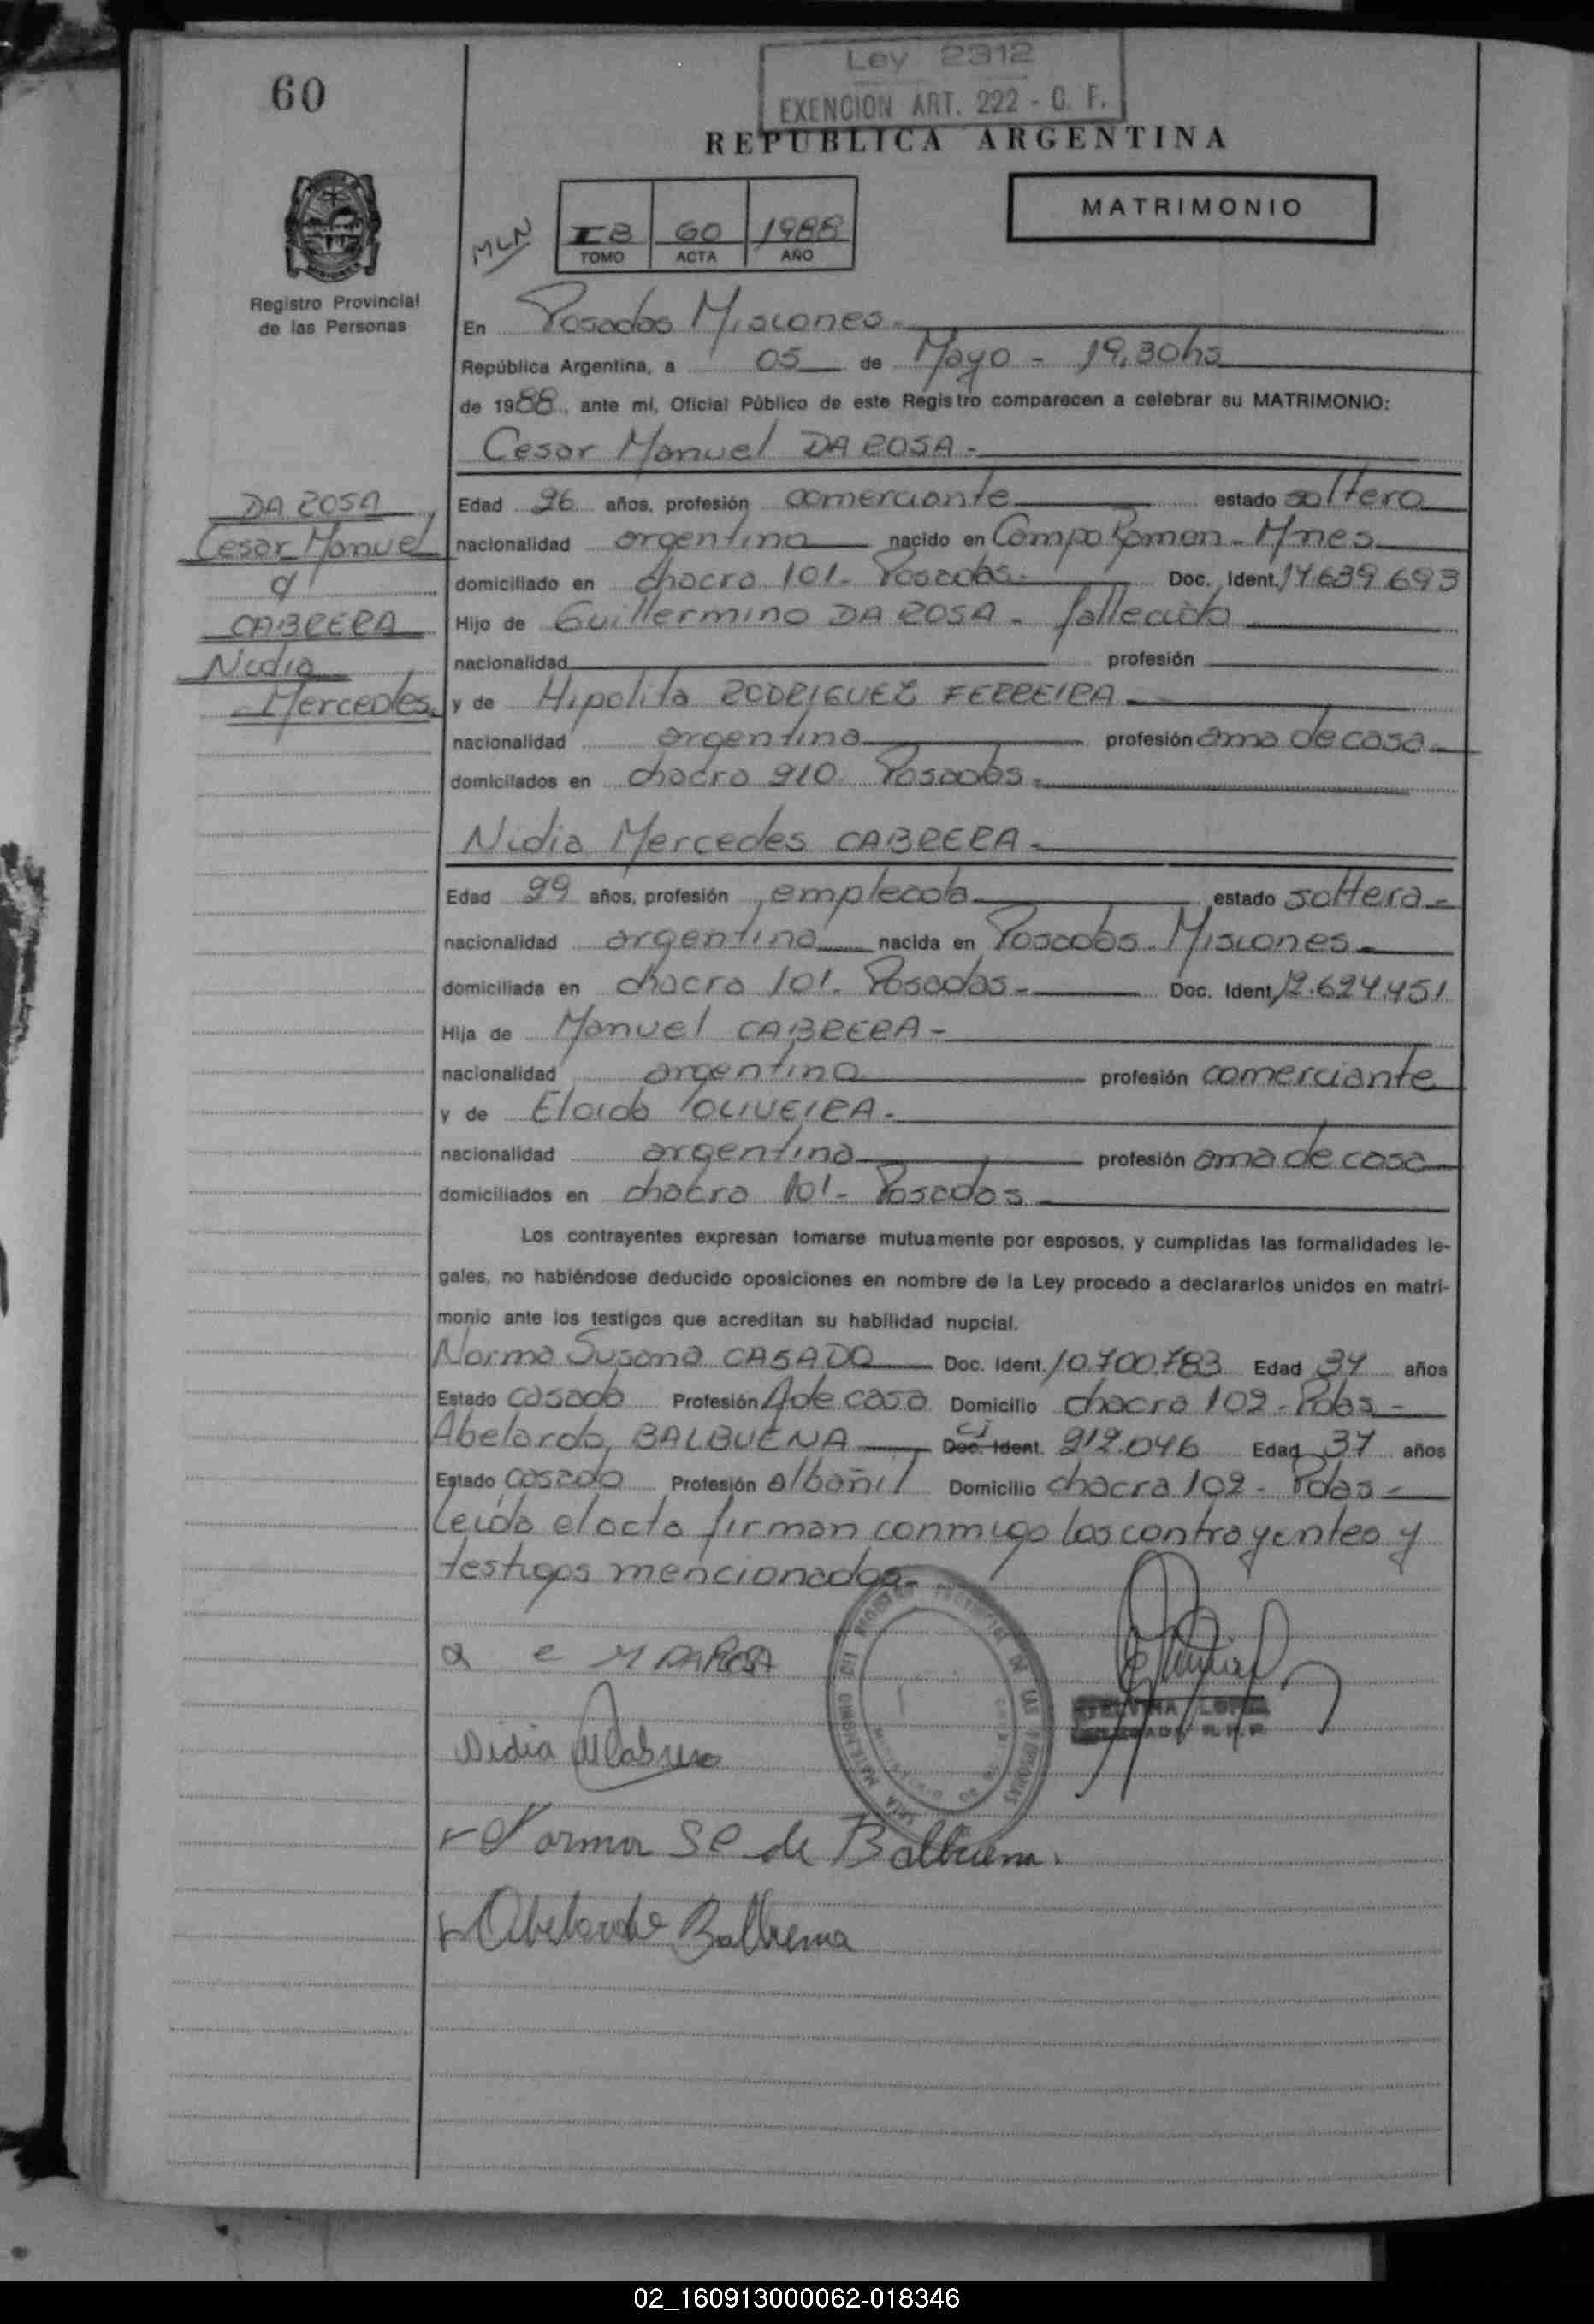 60
Ley 2312
EXENCION ART. 222 - C. F.
REPUBLICA ARGENTINA
MATRIMONIO
MLN
IB 60 1988
TOMO ACTA AÑO
Registro Provincial
de las Personas
En Posadas Misiones.
República Argentina, a 05 de Mayo - 19,30hs
de 1988, ante mí, Oficial Público de este Registro comparecen a celebrar su MATRIMONIO:
Cesar Manuel DA ROSA.-
DA ROSA
Cesar Manuel
c/
CABRERA
Nidia
Mercedes.
Edad 26 años, profesión comerciante estado soltero
nacionalidad argentina nacido en Campo Ramon - Mnes
domiciliado en chacra 101 - Posadas.- Doc. Ident. 14.639.693
Hijo de Guillermino DA ROSA - fallecido
nacionalidad profesión
y de Hipolita RODRIGUEZ FERREIRA
nacionalidad argentina profesión ama de casa
domicilados en chacra 210. Posadas.
Nidia Mercedes CABRERA.
Edad 29 años, profesión empleada estado soltera
nacionalidad argentina nacida en Posadas - Misiones
domiciliada en chacra 101. Posadas - Doc. Ident. 12.624.451
Hija de Manuel CABRERA -
nacionalidad argentina profesión comerciante
y de Elaida OLIVEIRA.
nacionalidad argentina profesión ama de casa
domiciliados en chacra 101 - Posadas
Los contrayentes expresan tomarse mutuamente por esposos, y cumplidas las formalidades le-
gales, no habiéndose deducido oposiciones en nombre de la Ley procedo a declararlos unidos en matri-
monio ante los testigos que acreditan su habilidad nupcial.
Norma Susana CASADO Doc. Ident. 10.700.783 Edad 34 años
Estado casada Profesión A de casa Domicilio chacra 102 - Pdas -
Abelardo BALBUENA Doc. Ident. CI 212.046 Edad 37 años
Estado casado Profesión albañil Domicilio chacra 102 - Pdas -
Leida el acta firman conmigo los contrayentes y
testigos mencionados.-
C M DAROSA
Nidia M Cabrera
Norma SC de Balbuena.
Abelardo Balbuena
REGISTRO PROVINCIAL DE LAS PERSONAS
02_160913000062-018346